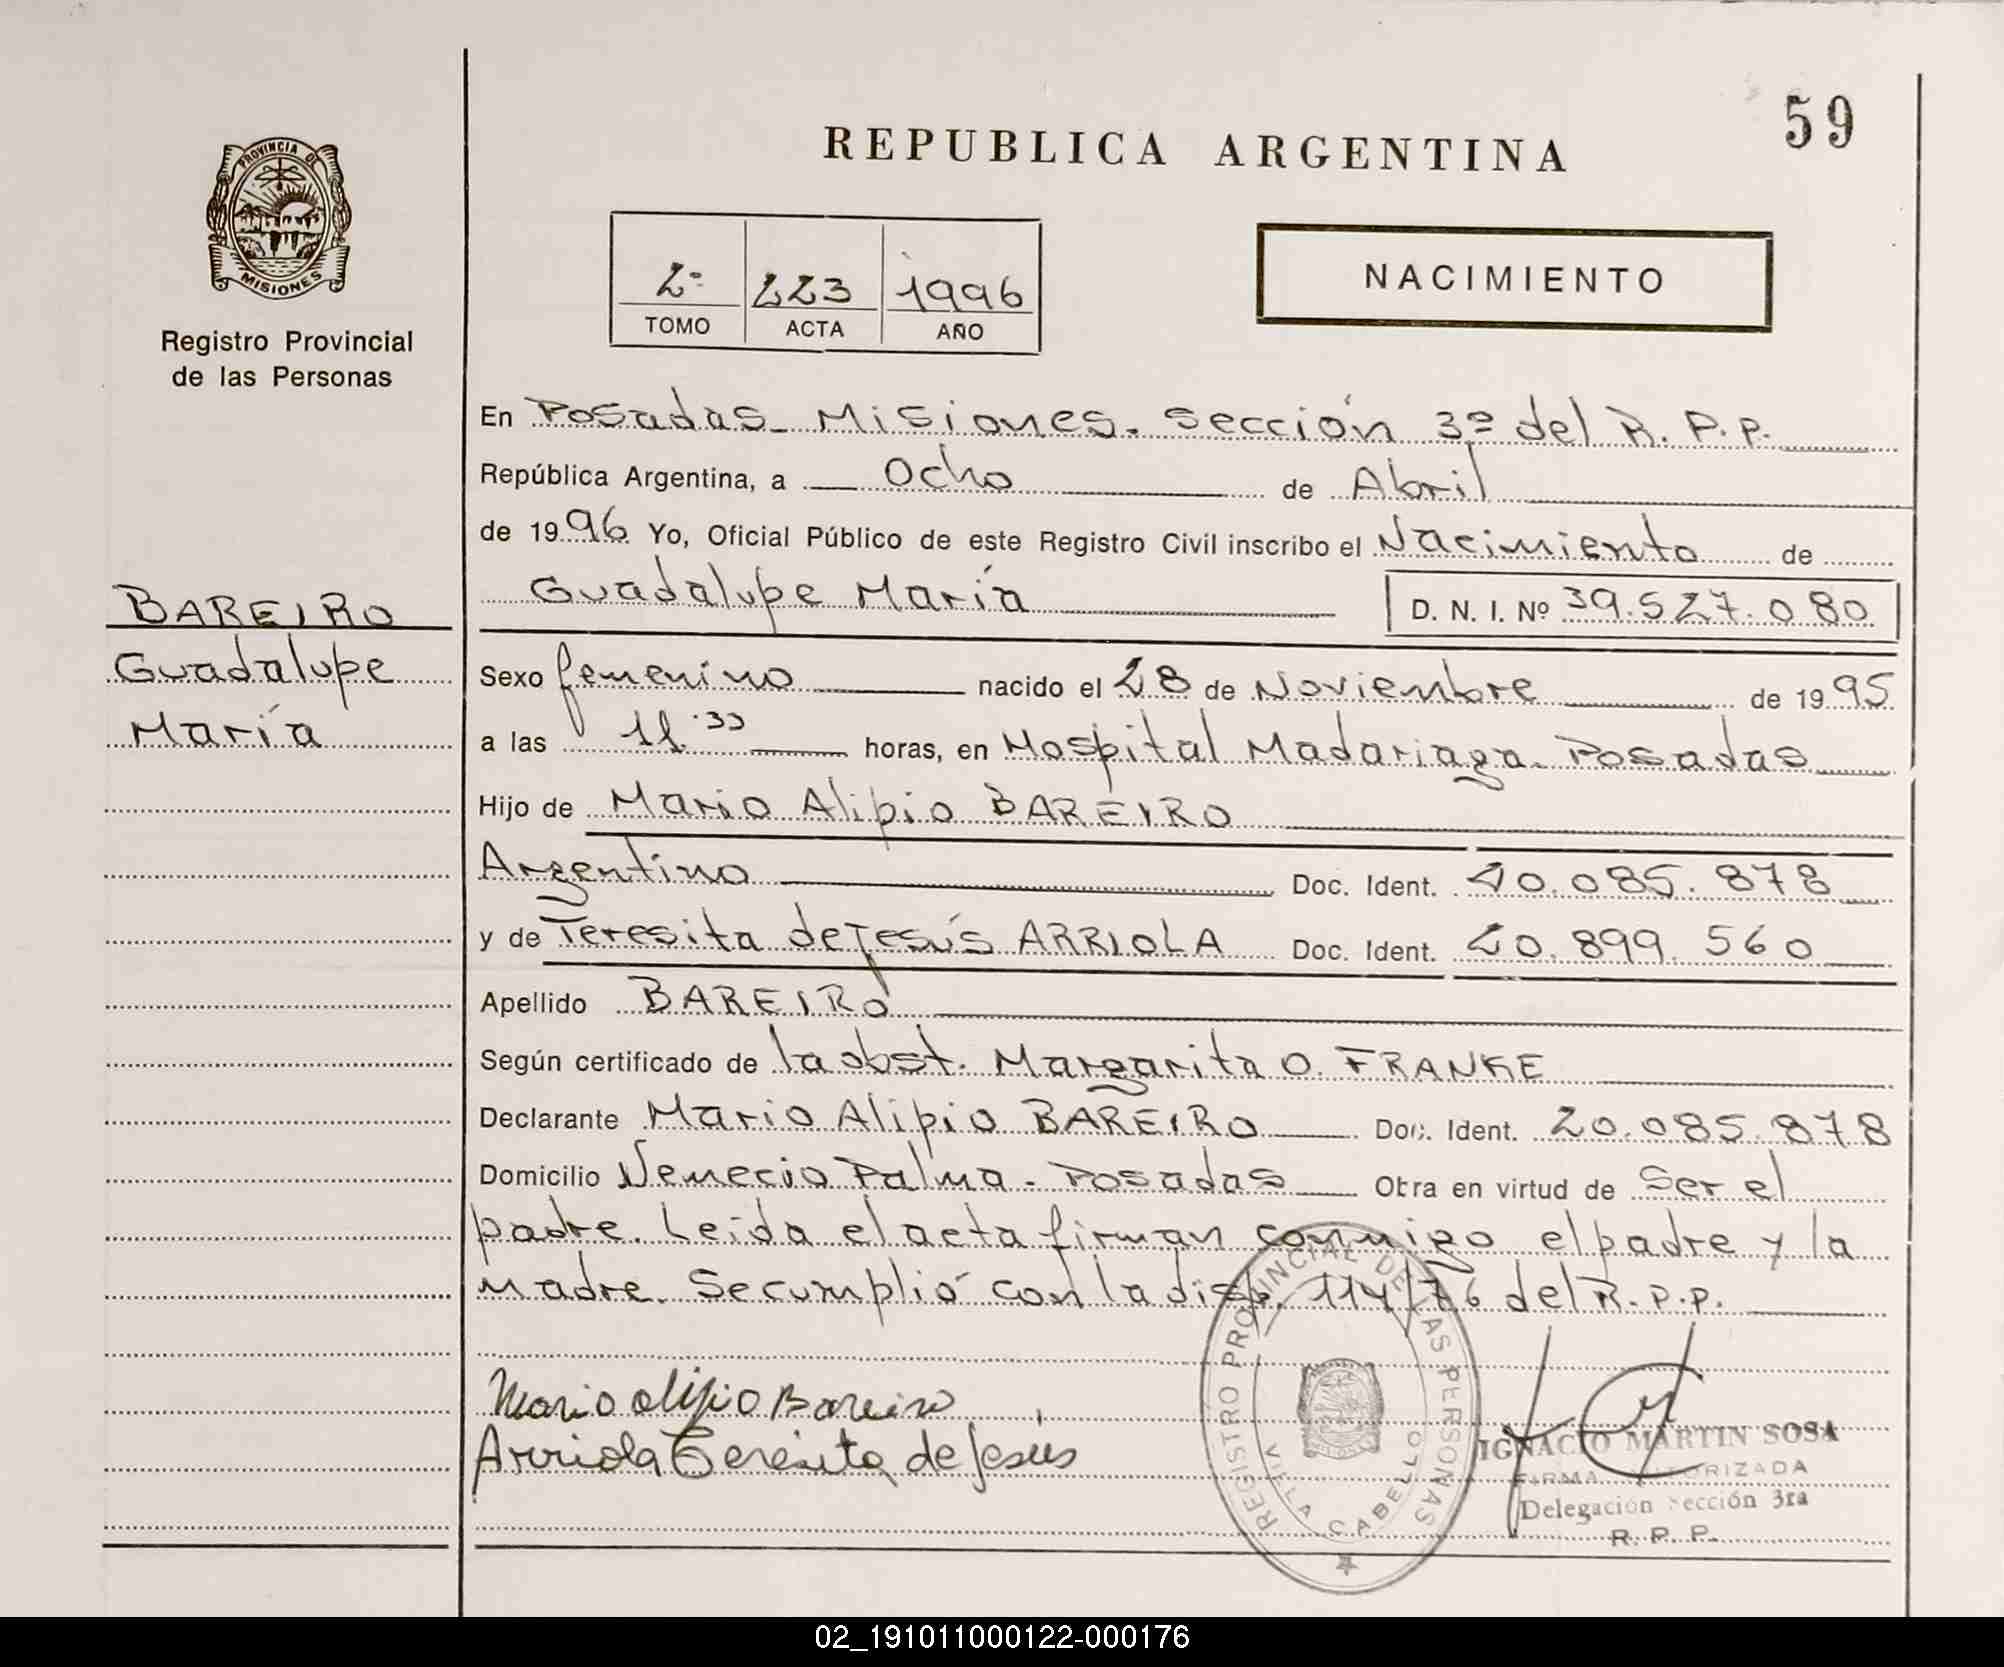 59
REPUBLICA ARGENTINA
PROVINCIA DE
MISIONES
Registro Provincial
de las Personas
2º 223 1996
TOMO ACTA AÑO
NACIMIENTO
En Posadas - Misiones. Sección 3º del R. P. P.
República Argentina, a Ocho de Abril
de 1996 Yo, Oficial Público de este Registro Civil inscribo el Nacimiento de
Guadalupe María D. N. I. Nº 39.527.080
BAREIRO
Guadalupe
María
Sexo femenino nacido el 28 de Noviembre de 1995
a las 11.33 horas, en Hospital Madariaga. Posadas
Hijo de Mario Alipio BAREIRO
Argentino Doc. Ident. 20.085.878
y de Teresita de Jesús ARRIOLA Doc. Ident. 20.899.560
Apellido BAREIRO
Según certificado de la obst. Margarita O. FRANKE
Declarante Mario Alipio BAREIRO Doc. Ident. 20.085.878
Domicilio Nemecio Palma - Posadas Obra en virtud de Ser el
padre. Leída el acta firman conmigo el padre y la
madre. Se cumplió con la disp. 114/76 del R. P. P.
Mario Alipio Bareiro
Arriola Teresita de Jesús
REGISTRO PROVINCIAL DE LAS PERSONAS
VILLA CABELLO
IGNACIO MARTIN SOSA
FIRMA AUTORIZADA
Delegación Sección 3ra
R. P. P.
02_191011000122-000176